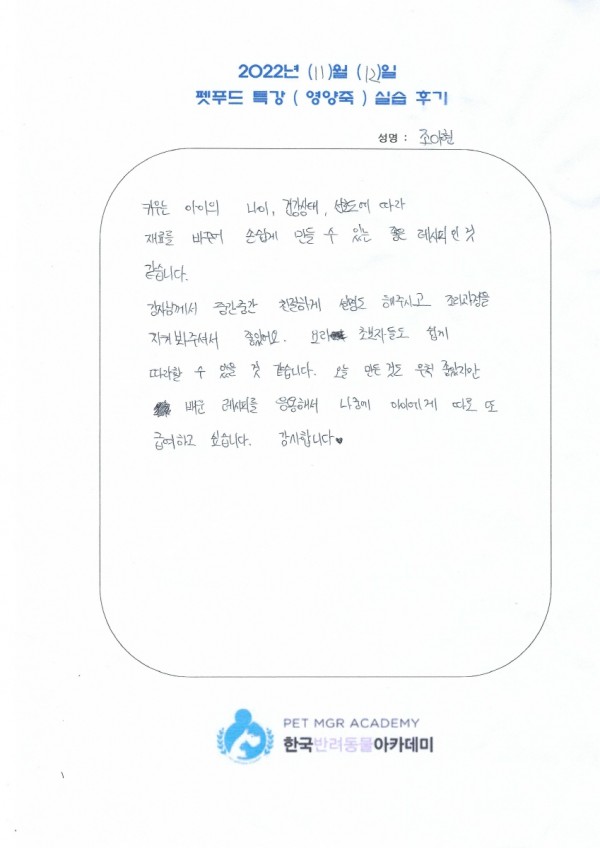 2022년 (11)월 (12)일
펫푸드 특강 ( 영양죽 ) 실습 후기
성명 : 조아현
키우는 아이의 나이, 건강상태, 선호도에 따라
재료를 바꾸어 손쉽게 만들 수 있는 좋은 레시피인 것
같습니다.
강사님께서 중간중간 친절하게 설명도 해주시고 조리과정을
지켜봐주셔서 좋았어요. 초보자들도 쉽게
따라할 수 있을 것 같습니다. 오늘 만든 것도 무척 좋았지만
배운 레시피를 응용해서 나중에 아이에게 따로 또
급여하고 싶습니다. 감사합니다♥
PET MGR ACADEMY
한국반려동물아카데미